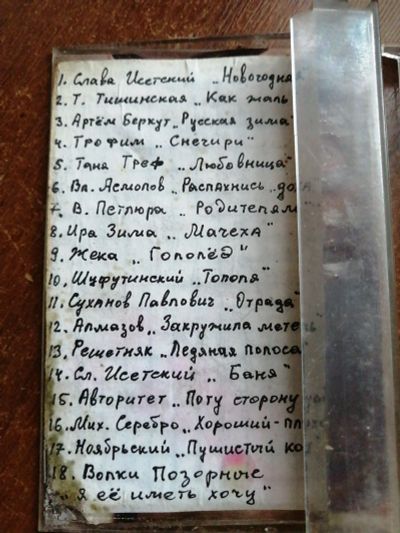 1. Слава Исетский „Новогодня
2. Т. Тишинская „Как жаль
3. Артём Беркут „Русская зима"
4. Трофим „Снегири"
5. Таня Треф „Любовница"
6. Вл. Асмолов „Распахнись душа
7. В. Петлюра „Родителям
8. Ира Зима „Мачеха"
9. Жека „Гололёд"
10. Шуфутинский „Тополя"
11. Суханов Павлович „Отрада"
12. Алмазов „Закружила метель
13. Решетняк „Ледяная полоса"
14. Сл. Исетский „Баня"
15. Авторитет „По ту сторону
16. Мих. Серебро „Хороший-плохо
17. Ноябрьский „Пушистый кот
18. Волки Позорные
„Я её иметь хочу"